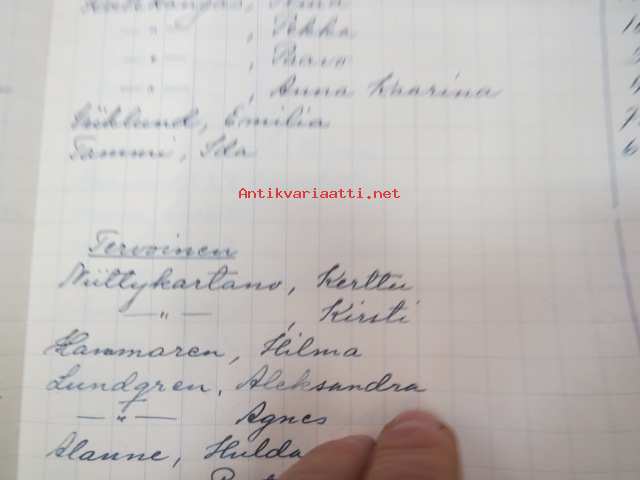 — " — , Pekka
— " — , Paavo
— " — , Anna Kaarina
, Emilia
Tammi, Ida
Antikvariaatti.net
Tervoinen
Niittykartano, Kerttu
— " — , Kirsti
Hammaren, Hilma
Lundgren, Aleksandra
— " — Agnes
Alanne, Hulda